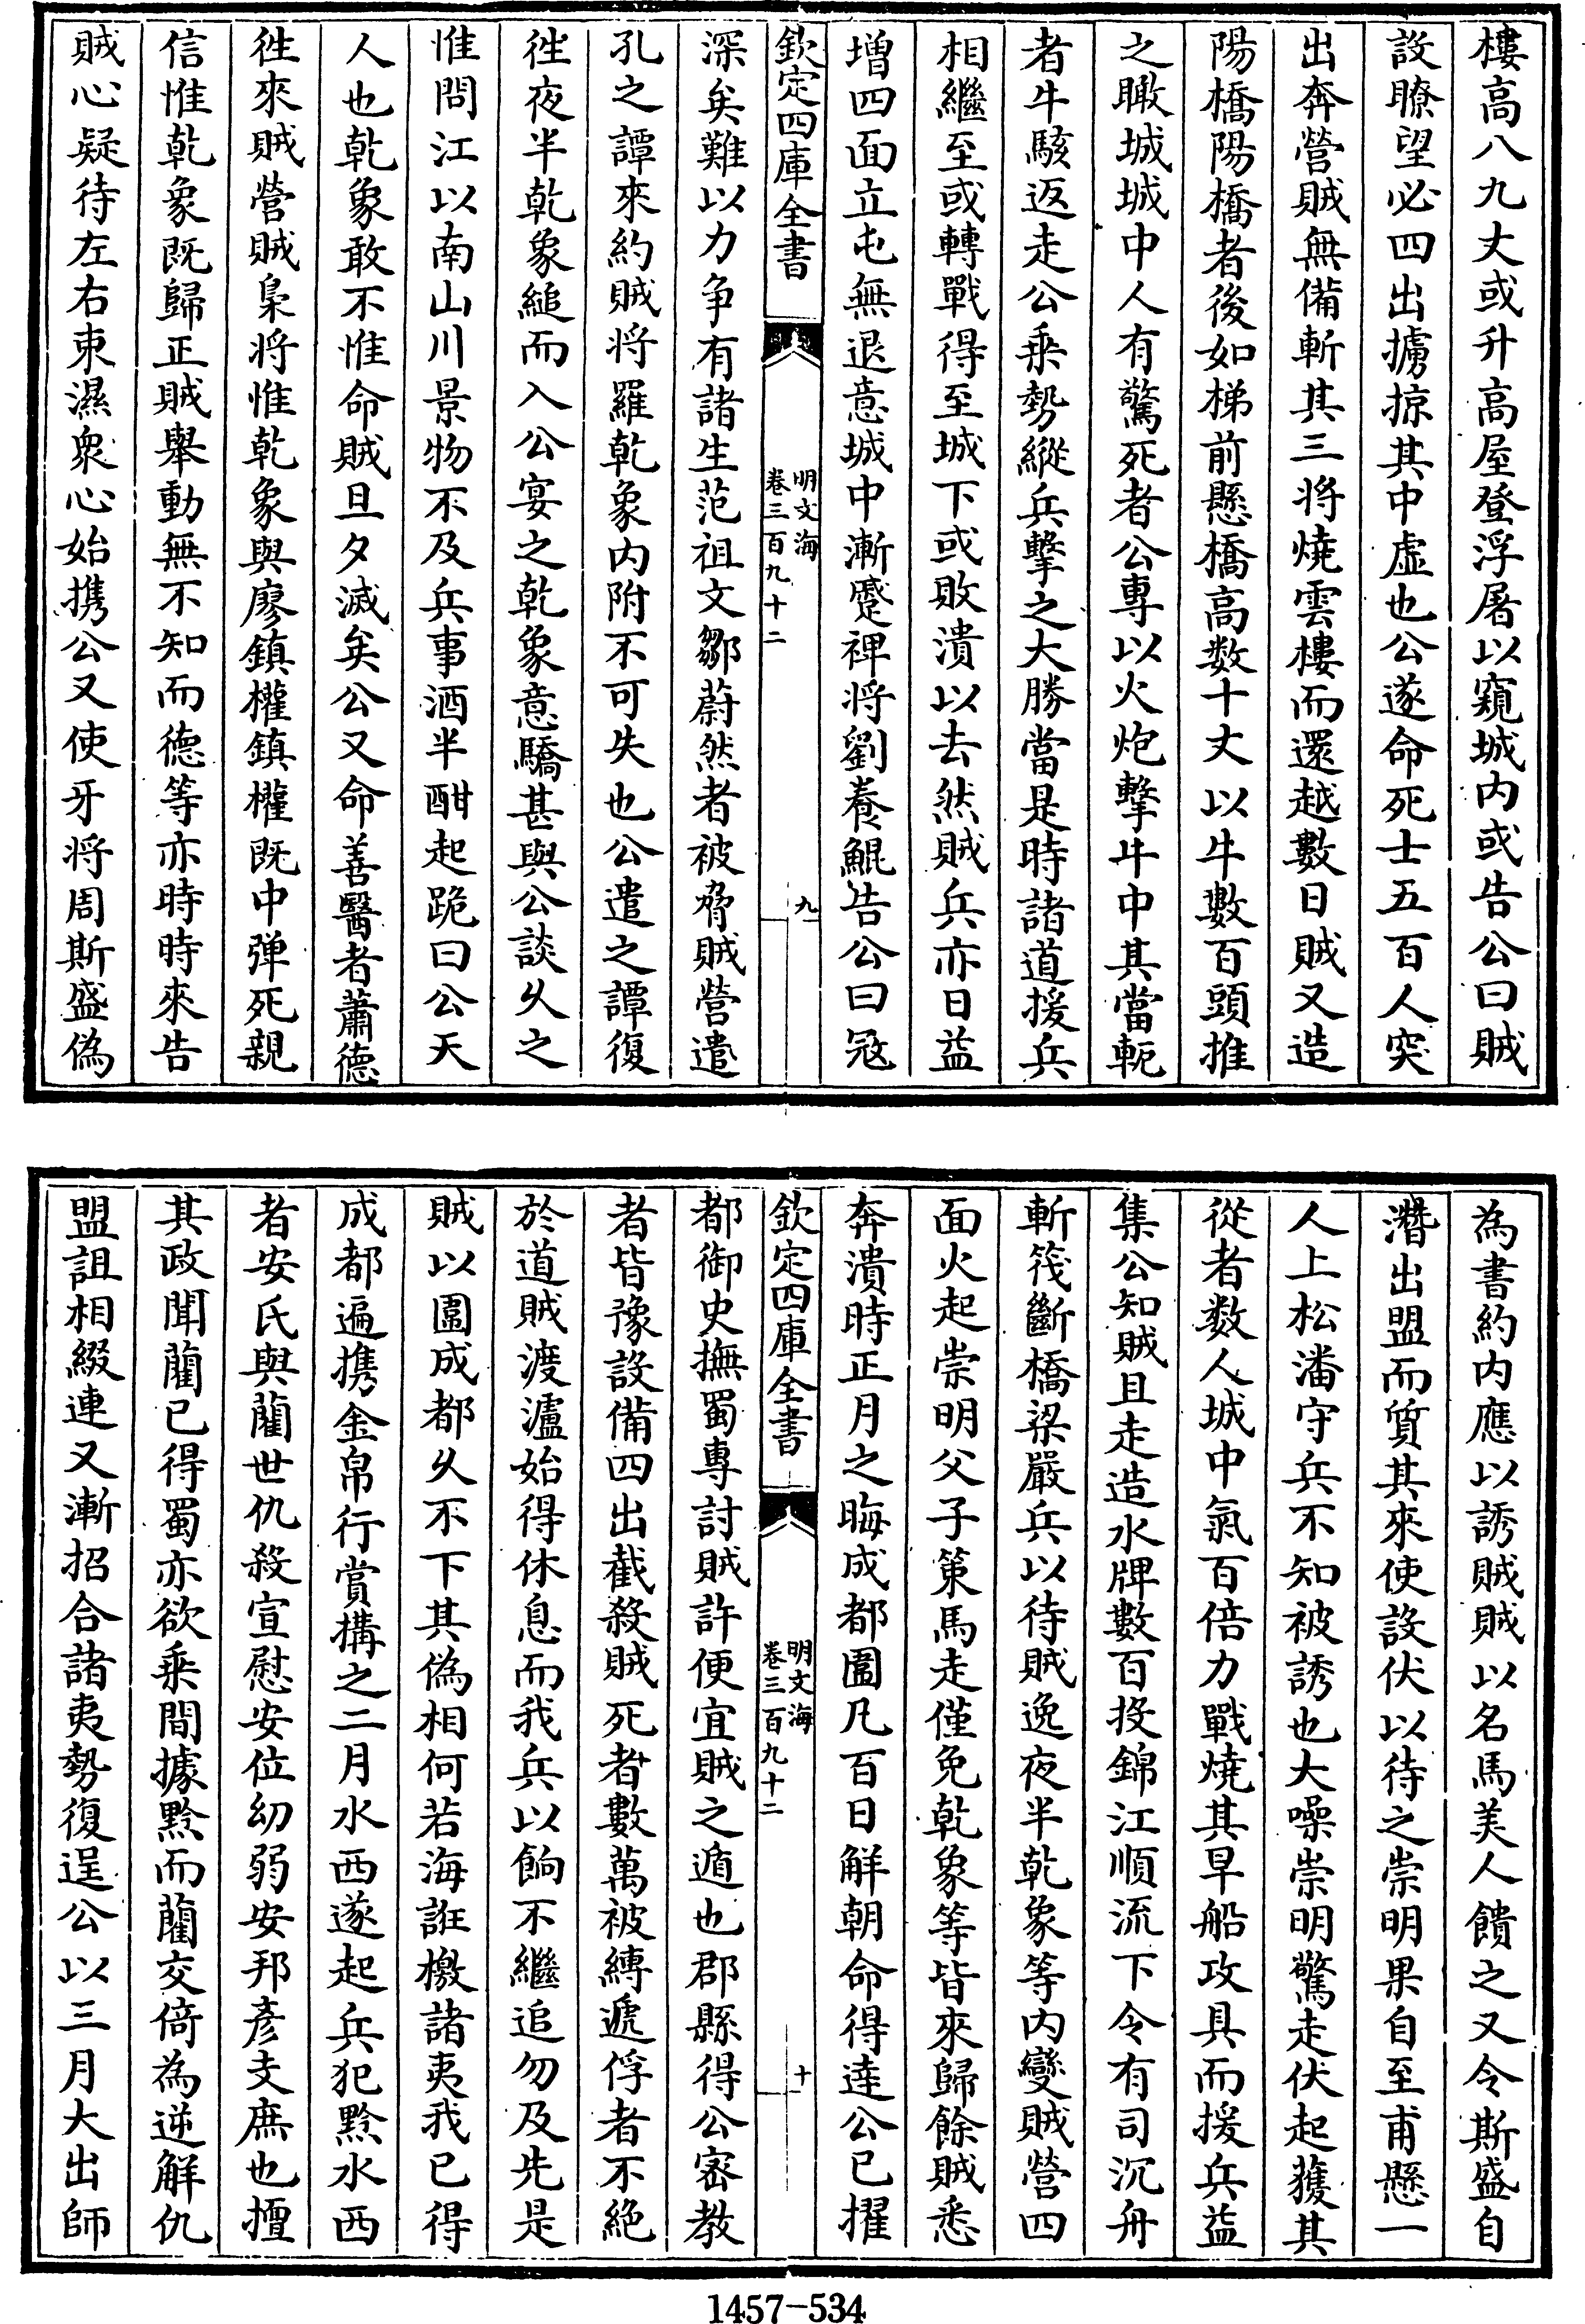 樓高八九丈或升高屋登浮屠以窺城内或告公曰賊
設瞭望必四出擄掠其中虚也公遂命死士五百人突
出奔營賊無備斬其三将燒雲樓而還越數日賊又造
陽橋陽橋者後如梯前懸橋高数十丈以牛數百頭推
之瞰城城中人有驚死者公專以火炮擊牛中其當軛
者牛駭返走公乘勢縱兵擊之大勝當是時諸道援兵
相繼至或轉戰得至城下或敗潰以去然賊兵亦日益
增四面立屯無退意城中漸蹙裨将劉養鯤告公曰冦
欽定四庫全書
明文海
卷三百九十二
九
深矣難以力争有諸生范祖文鄒蔚然者被脅賊營遣
孔之譚來約賊将羅乾象内附不可失也公遣之譚復
徃夜半乾象縋而入公宴之乾象意驕甚與公談乆之
惟問江以南山川景物不及兵事酒半酣起跪曰公天
人也乾象敢不惟命賊旦夕滅矣公又命善醫者蕭德
徃來賊營賊梟将惟乾象與廖鎮權鎮權既中弹死親
信惟乾象既歸正賊舉動無不知而德等亦時時來告
賊心疑待左右束濕衆心始携公又使牙将周斯盛偽
為書約内應以誘賊賊以名馬美人饋之又令斯盛自
濳出盟而質其來使設伏以待之崇明果自至甫懸一
人上松潘守兵不知被誘也大噪崇明驚走伏起獲其
從者数人城中氣百倍力戰燒其旱船攻具而援兵益
集公知賊且走造水牌數百投錦江順流下令有司沉舟
斬筏斷橋梁嚴兵以待賊逸夜半乾象等内變賊營四
面火起崇明父子策馬走僅免乾象等皆來歸餘賊悉
奔潰時正月之晦成都圍凡百日解朝命得達公已擢
欽定四庫全書
明文海
卷三百九十二
十
都御史撫蜀專討賊許便宜賊之遁也郡縣得公宻教
者皆豫設備四出截殺賊死者數萬被縛遞俘者不絶
於道賊渡瀘始得休息而我兵以餉不繼追勿及先是
賊以圍成都乆不下其偽相何若海誑檄諸夷我已得
成都遍携金帛行賞搆之二月水西遂起兵犯黔水西
者安氏與藺世仇殺宣慰安位㓜弱安邦彦支庶也擅
其政聞藺已得蜀亦欲乘間據黔而藺交倚為逆解仇
盟詛相綴連又漸招合諸夷勢復逞公以三月大出師
1457-534